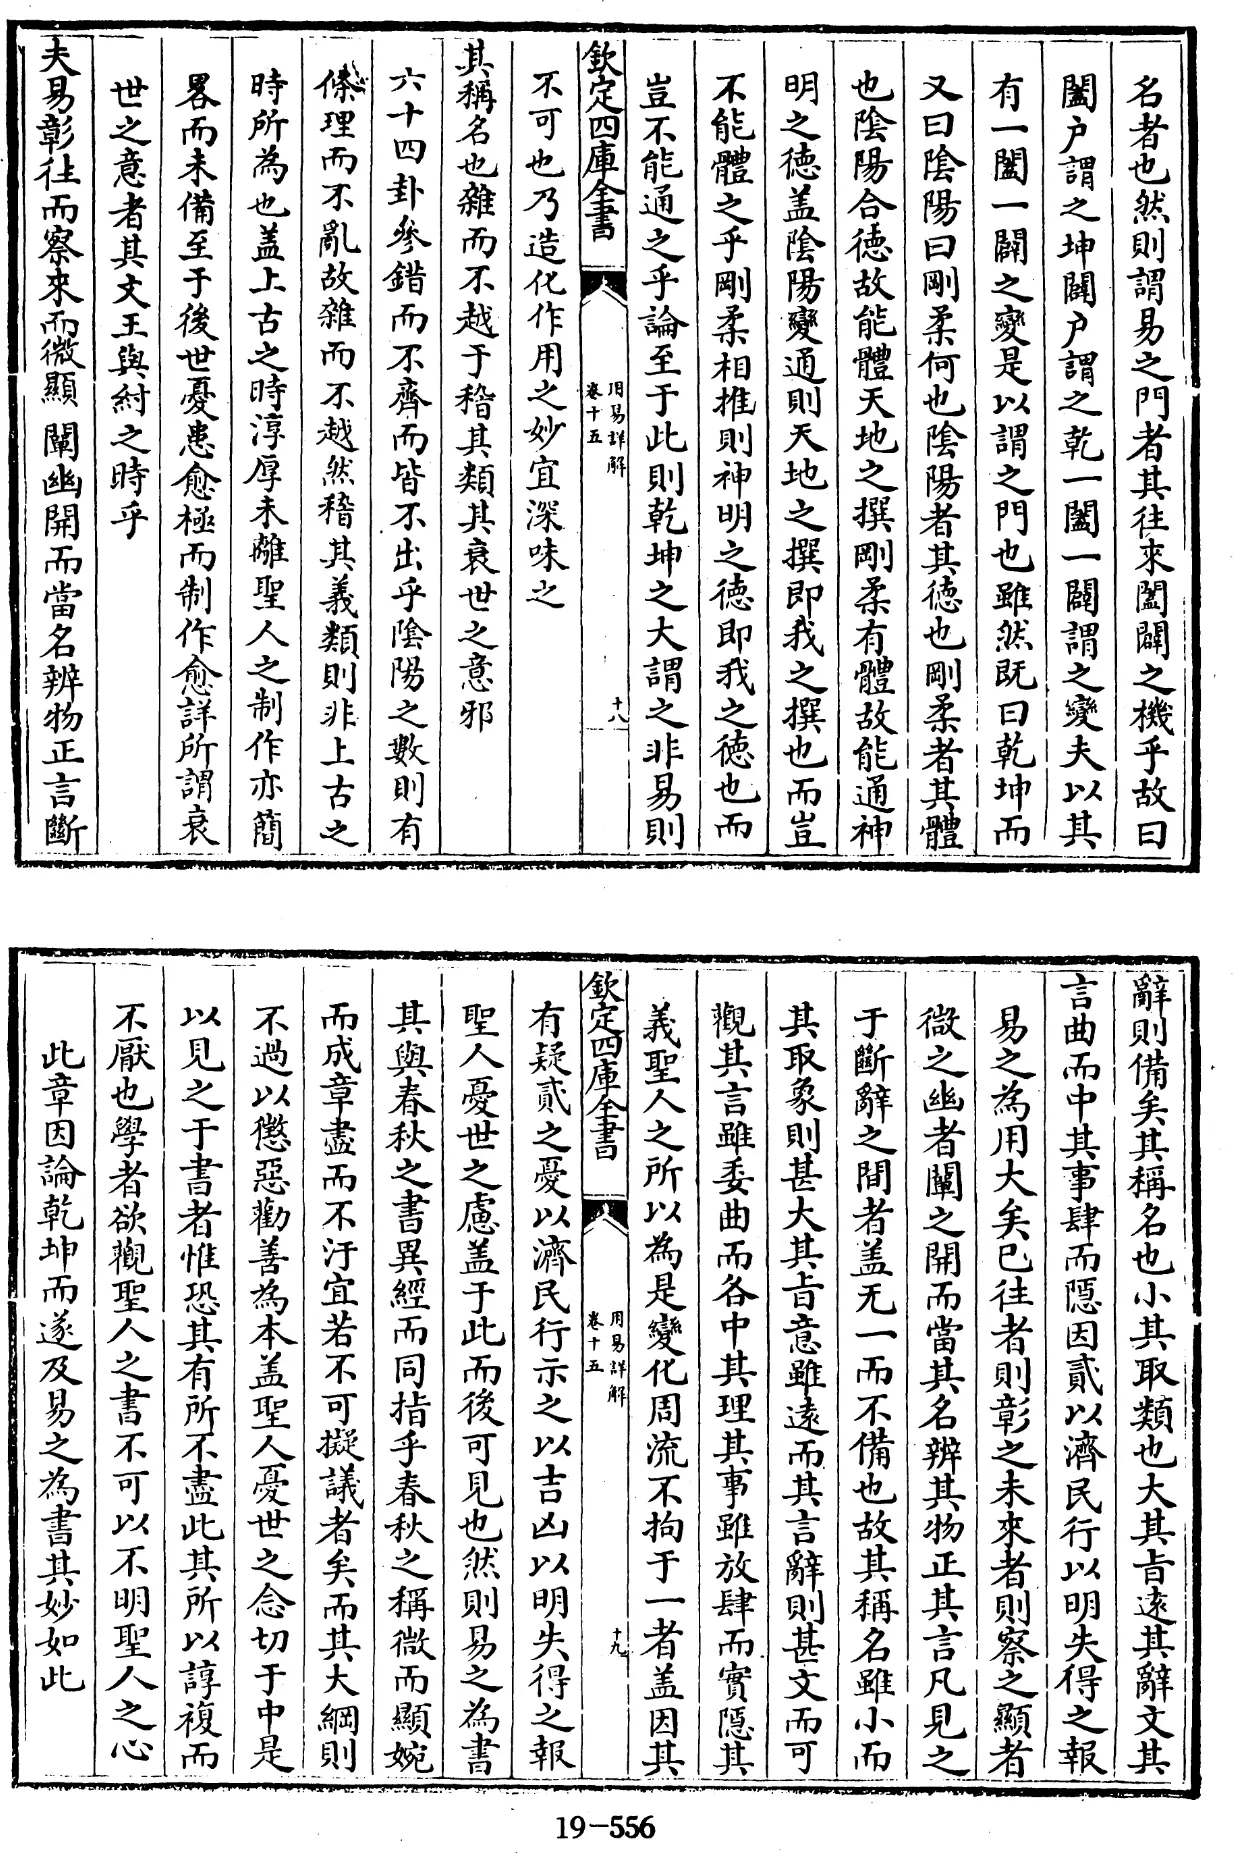 名者也然則謂易之門者其往來闔闢之機乎故曰
闔户謂之坤闢户謂之乾一闔一闢謂之變夫以其
有一闔一闢之變是以謂之門也雖然既曰乾坤而
又曰陰陽曰剛柔何也陰陽者其德也剛柔者其體
也陰陽合德故能體天地之撰剛柔有體故能通神
明之德盖陰陽變通則天地之撰即我之撰也而豈
不能體之乎剛柔相推則神明之德即我之德也而
豈不能通之乎論至于此則乾坤之大謂之非易則
欽定四庫全書
周易詳解
卷十五
十八
不可也乃造化作用之妙宜深味之
其稱名也雜而不越于稽其類其衰世之意邪
六十四卦參錯而不齊而皆不出乎陰陽之數則有
條理而不亂故雜而不越然稽其義類則非上古之
時所為也盖上古之時淳厚未離聖人之制作亦簡
畧而未備至于後世憂患愈極而制作愈詳所謂衰
世之意者其文王與紂之時乎
夫易彰往而察來而微顯闡幽開而當名辨物正言斷
辭則備矣其稱名也小其取類也大其旨遠其辭文其
言曲而中其事肆而隱因貳以濟民行以明失得之報
易之為用大矣已往者則彰之未來者則察之顯者
微之幽者闡之開而當其名辨其物正其言凡見之
于斷辭之間者盖无一而不備也故其稱名雖小而
其取象則甚大其旨意雖遠而其言辭則甚文而可
觀其言雖委曲而各中其理其事雖放肆而實隱其
義聖人之所以為是變化周流不拘于一者盖因其
欽定四庫全書
周易詳解
卷十五
十九
有疑貳之憂以濟民行示之以吉凶以明失得之報
聖人憂世之慮盖于此而後可見也然則易之為書
其與春秋之書異經而同指乎春秋之稱微而顯婉
而成章盡而不汙宜若不可擬議者矣而其大綱則
不過以懲惡勸善為本盖聖人憂世之念切于中是
以見之于書者惟恐其有所不盡此其所以諄複而
不厭也學者欲觀聖人之書不可以不明聖人之心
此章因論乾坤而遂及易之為書其妙如此
19-556